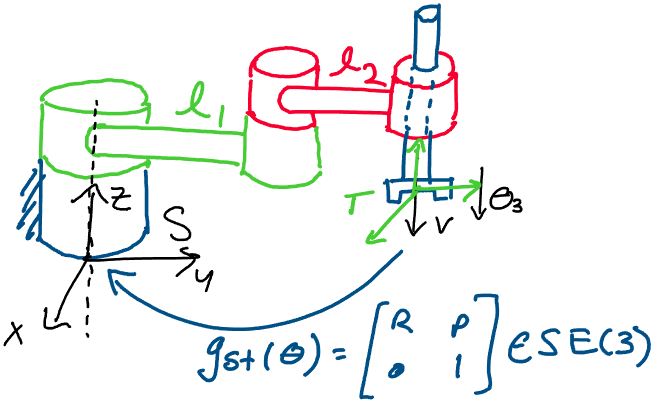 l₂
l₁
z
S
y
x
T
v
θ₃
gst(θ) = [R P
0 1] ∈ SE(3)